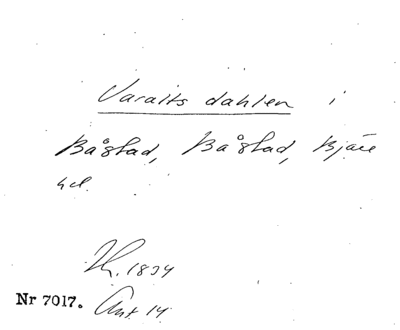 Varaits dahlen i
Båstad, Båstad, Bjäre
hd.
Th. 1834
Nr 7017. Ant 14